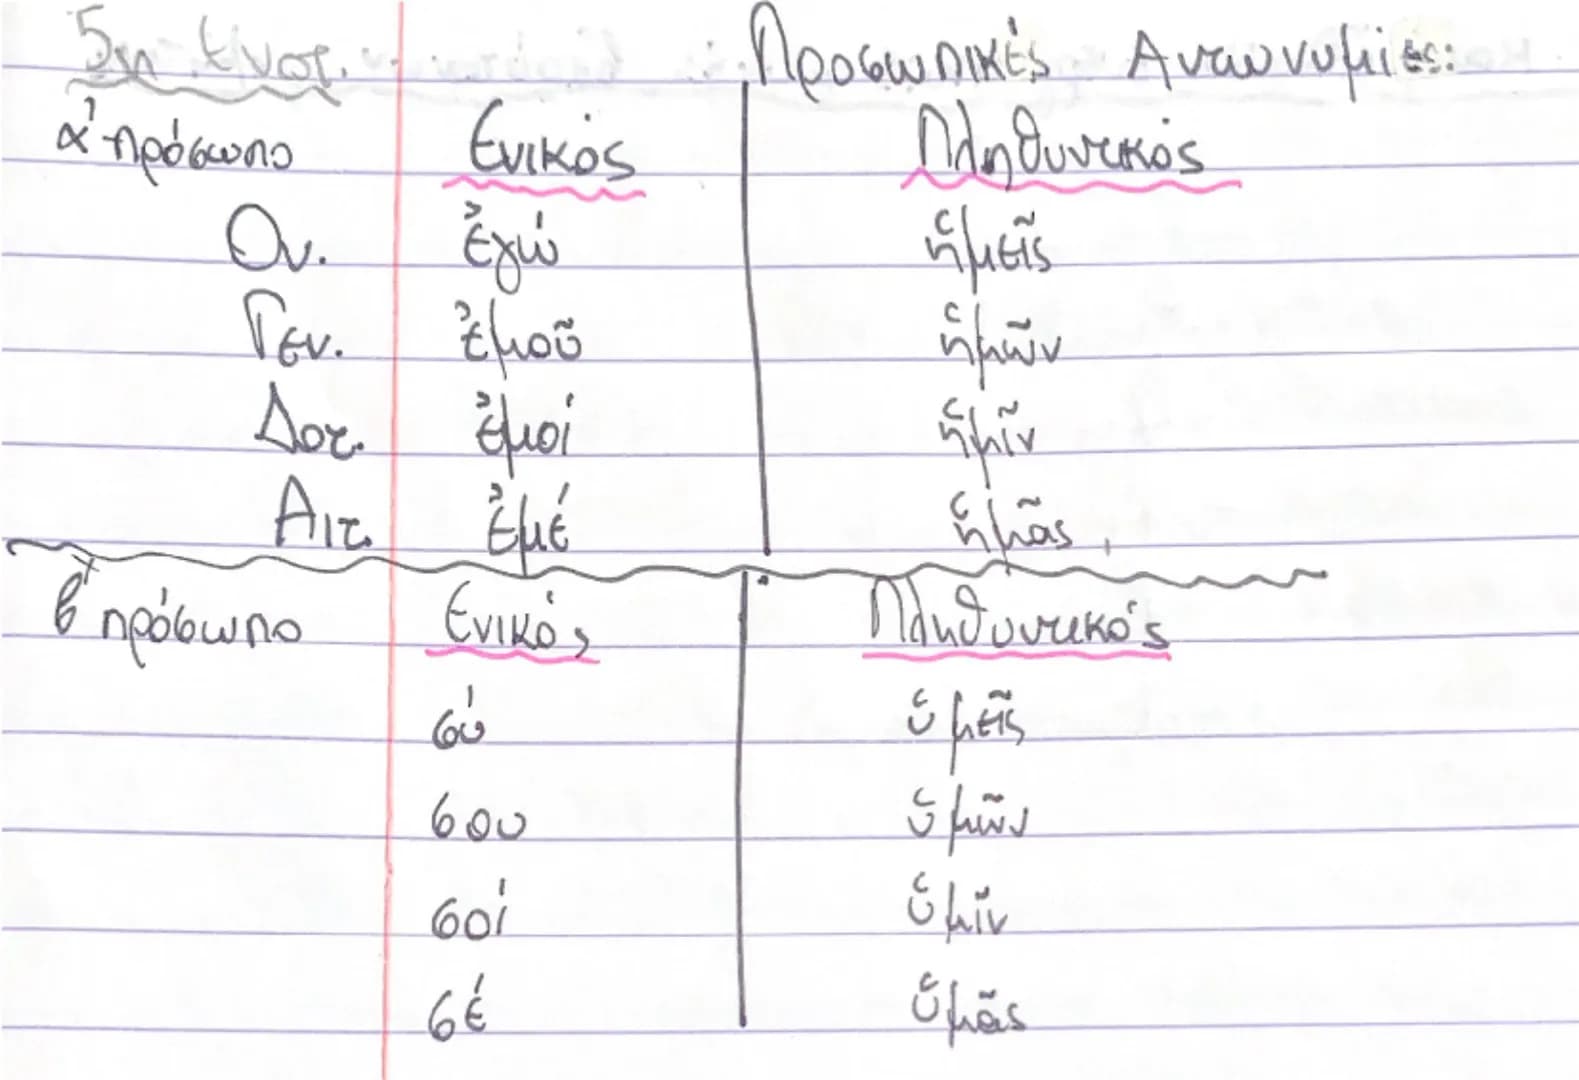 5η Ενοτ. Προσωπικές Αντωνυμίες:
α' πρόσωπο Ενικός Πληθυντικός
Ον. ἐγώ ἡμεῖς
Γεν. ἐμοῦ ἡμῶν
Δοτ. ἐμοί ἡμῖν
Αιτ. ἐμέ ἡμᾶς
β' πρόσωπο Ενικός Πληθυντικός
σύ ὑμεῖς
σου ὑμῶν
σοί ὑμῖν
σέ ὑμᾶς